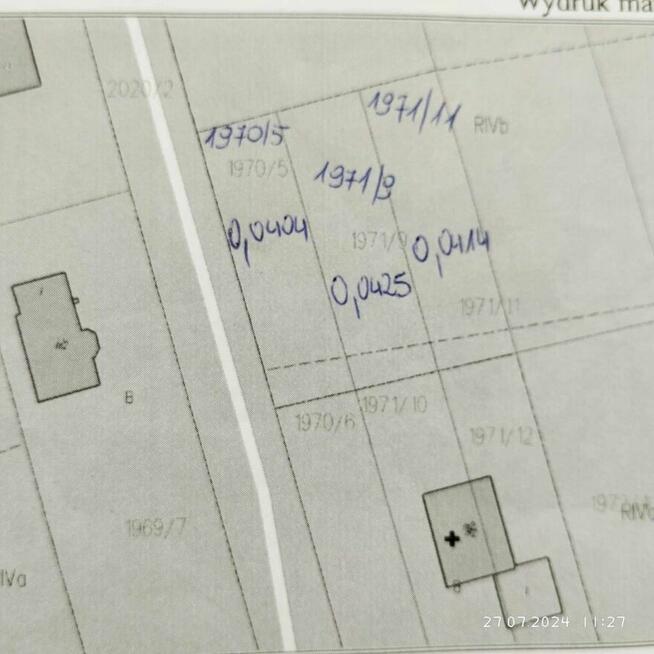 Wydruk ma
2020/2
1970/5
1971/11
RIVb
1970/5
1971/9
0,0404
1971/9
0,0414
0,0425
1971/11
1970/6
1971/10
1971/12
B
1969/7
RIVb
IVa
B
27.07.2024 11:27